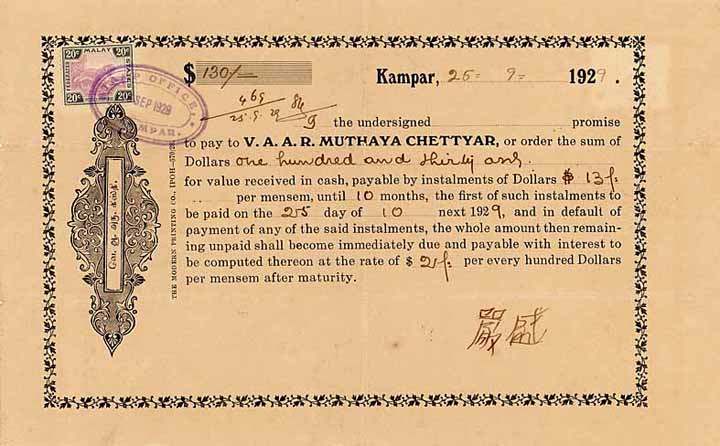 20c MALAY 20c
FEDERATED
STATES
20c 20c
STAMP OFFICE
SEP 1929
KAMPAR.
$ 130/-
Kampar, 25- 9- 1929.
469
25.9.29
the undersigned promise
to pay to V. A. A. R. MUTHAYA CHETTYAR, or order the sum of
Dollars one hundred and thirty only
for value received in cash, payable by instalments of Dollars $ 13/-
per mensem, until 10 months, the first of such instalments to
be paid on the 25 day of 10 next 1929, and in default of
payment of any of the said instalments, the whole amount then remain-
ing unpaid shall become immediately due and payable with interest to
be computed thereon at the rate of $ 2/- per every hundred Dollars
per mensem after maturity.
嚴盛
THE MODERN PRINTING CO., IPOH